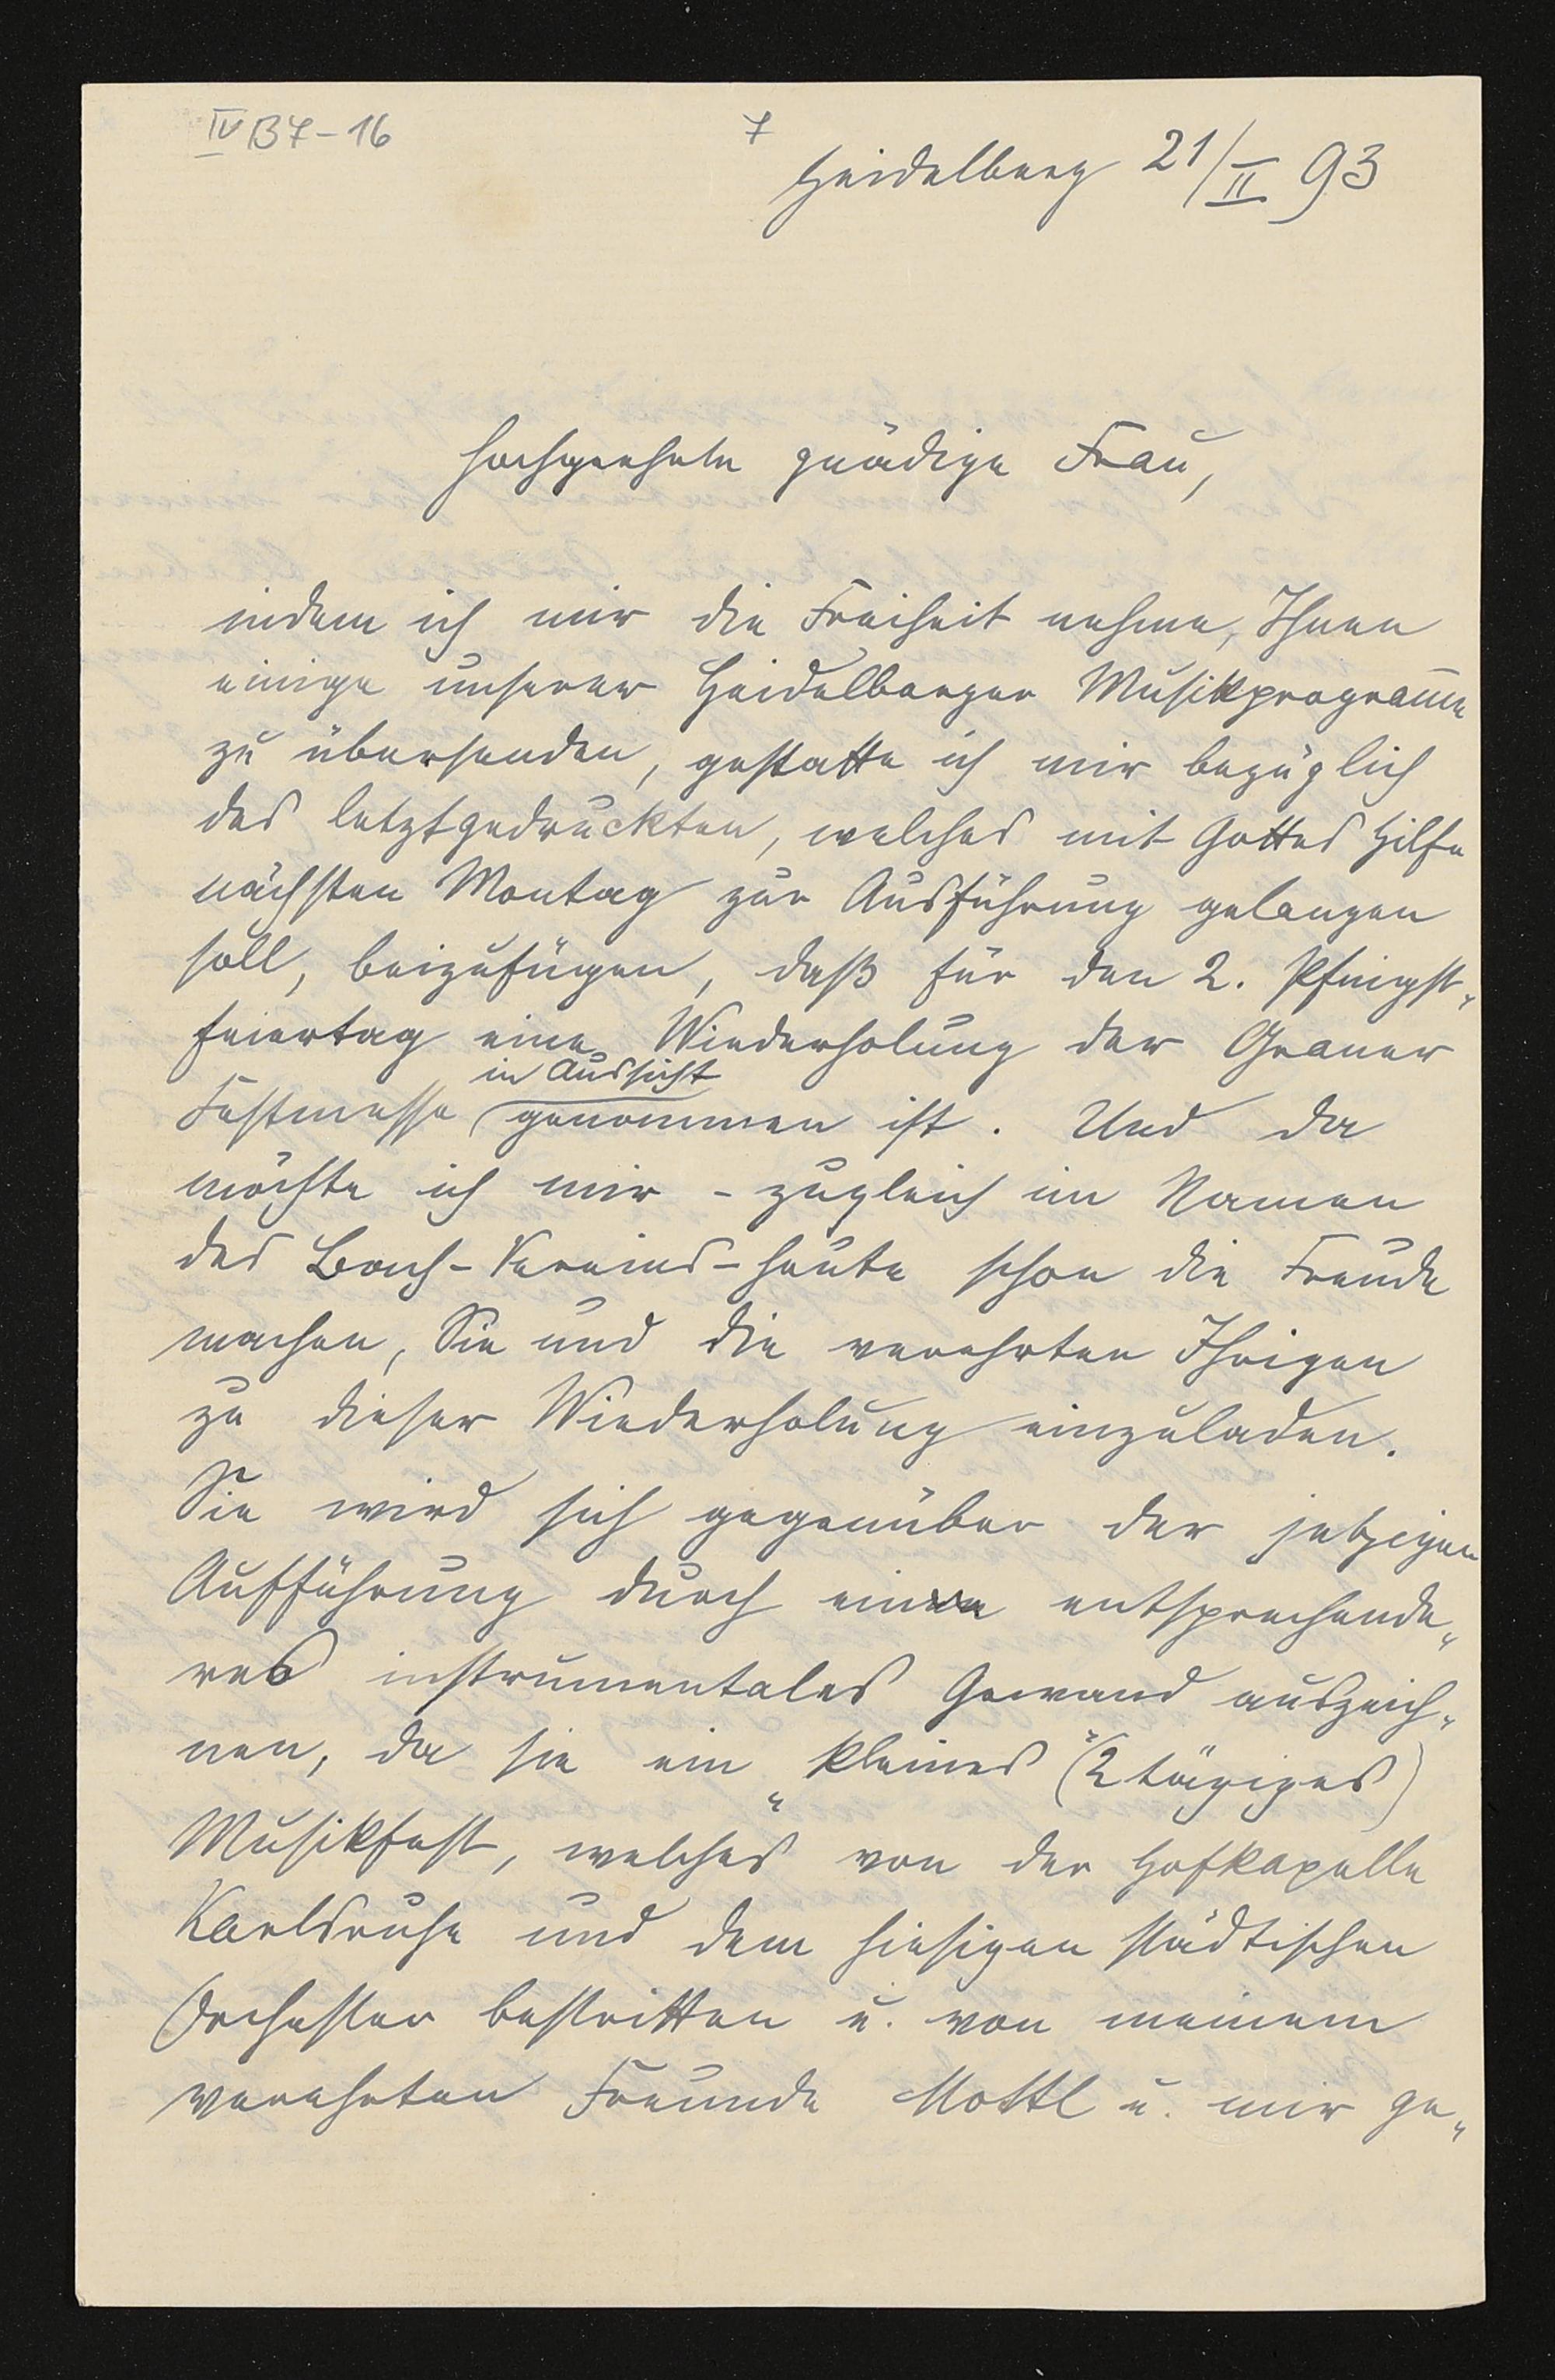 IV B 7-16
7
Heidelberg 21/II 93
Hochgeehrte gnädige Frau,
indem ich mir die Freiheit nehme, Ihnen
einige unserer Heidelberger Musikprogram̄e
zu übersenden, gestatte ich mir bezüglich
des letztgedruckten, welches mit Gottes Hilfe
nächsten Montag zur Ausführung gelangen
soll, beizufügen, daß für den 2. Pfingst„
feiertag eine Wiederholung der Graner
in Aussicht
Festmesse genommen ist. Und da
möchte ich mir - zugleich im Namen
des Bach-Vereins - heute schon die Freude
machen, Sie und die verehrten Ihrigen
zu dieser Wiederholung einzuladen.
Sie wird sich gegenüber der jetzigen
Aufführung durch ein entsprechende„
res instrumentales Gewand auszeich„
nen, da sie ein „kleines“ (2 tägiges)
Musikfest, welches von der Hofkapelle
Karlsruhe und dem hiesigen städtischen
Orchester bestritten u. von meinem
verehrten Freunde Mottl u. mir ge„